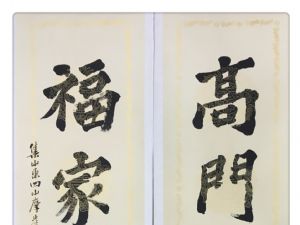 高門
福家
集山東四山摩